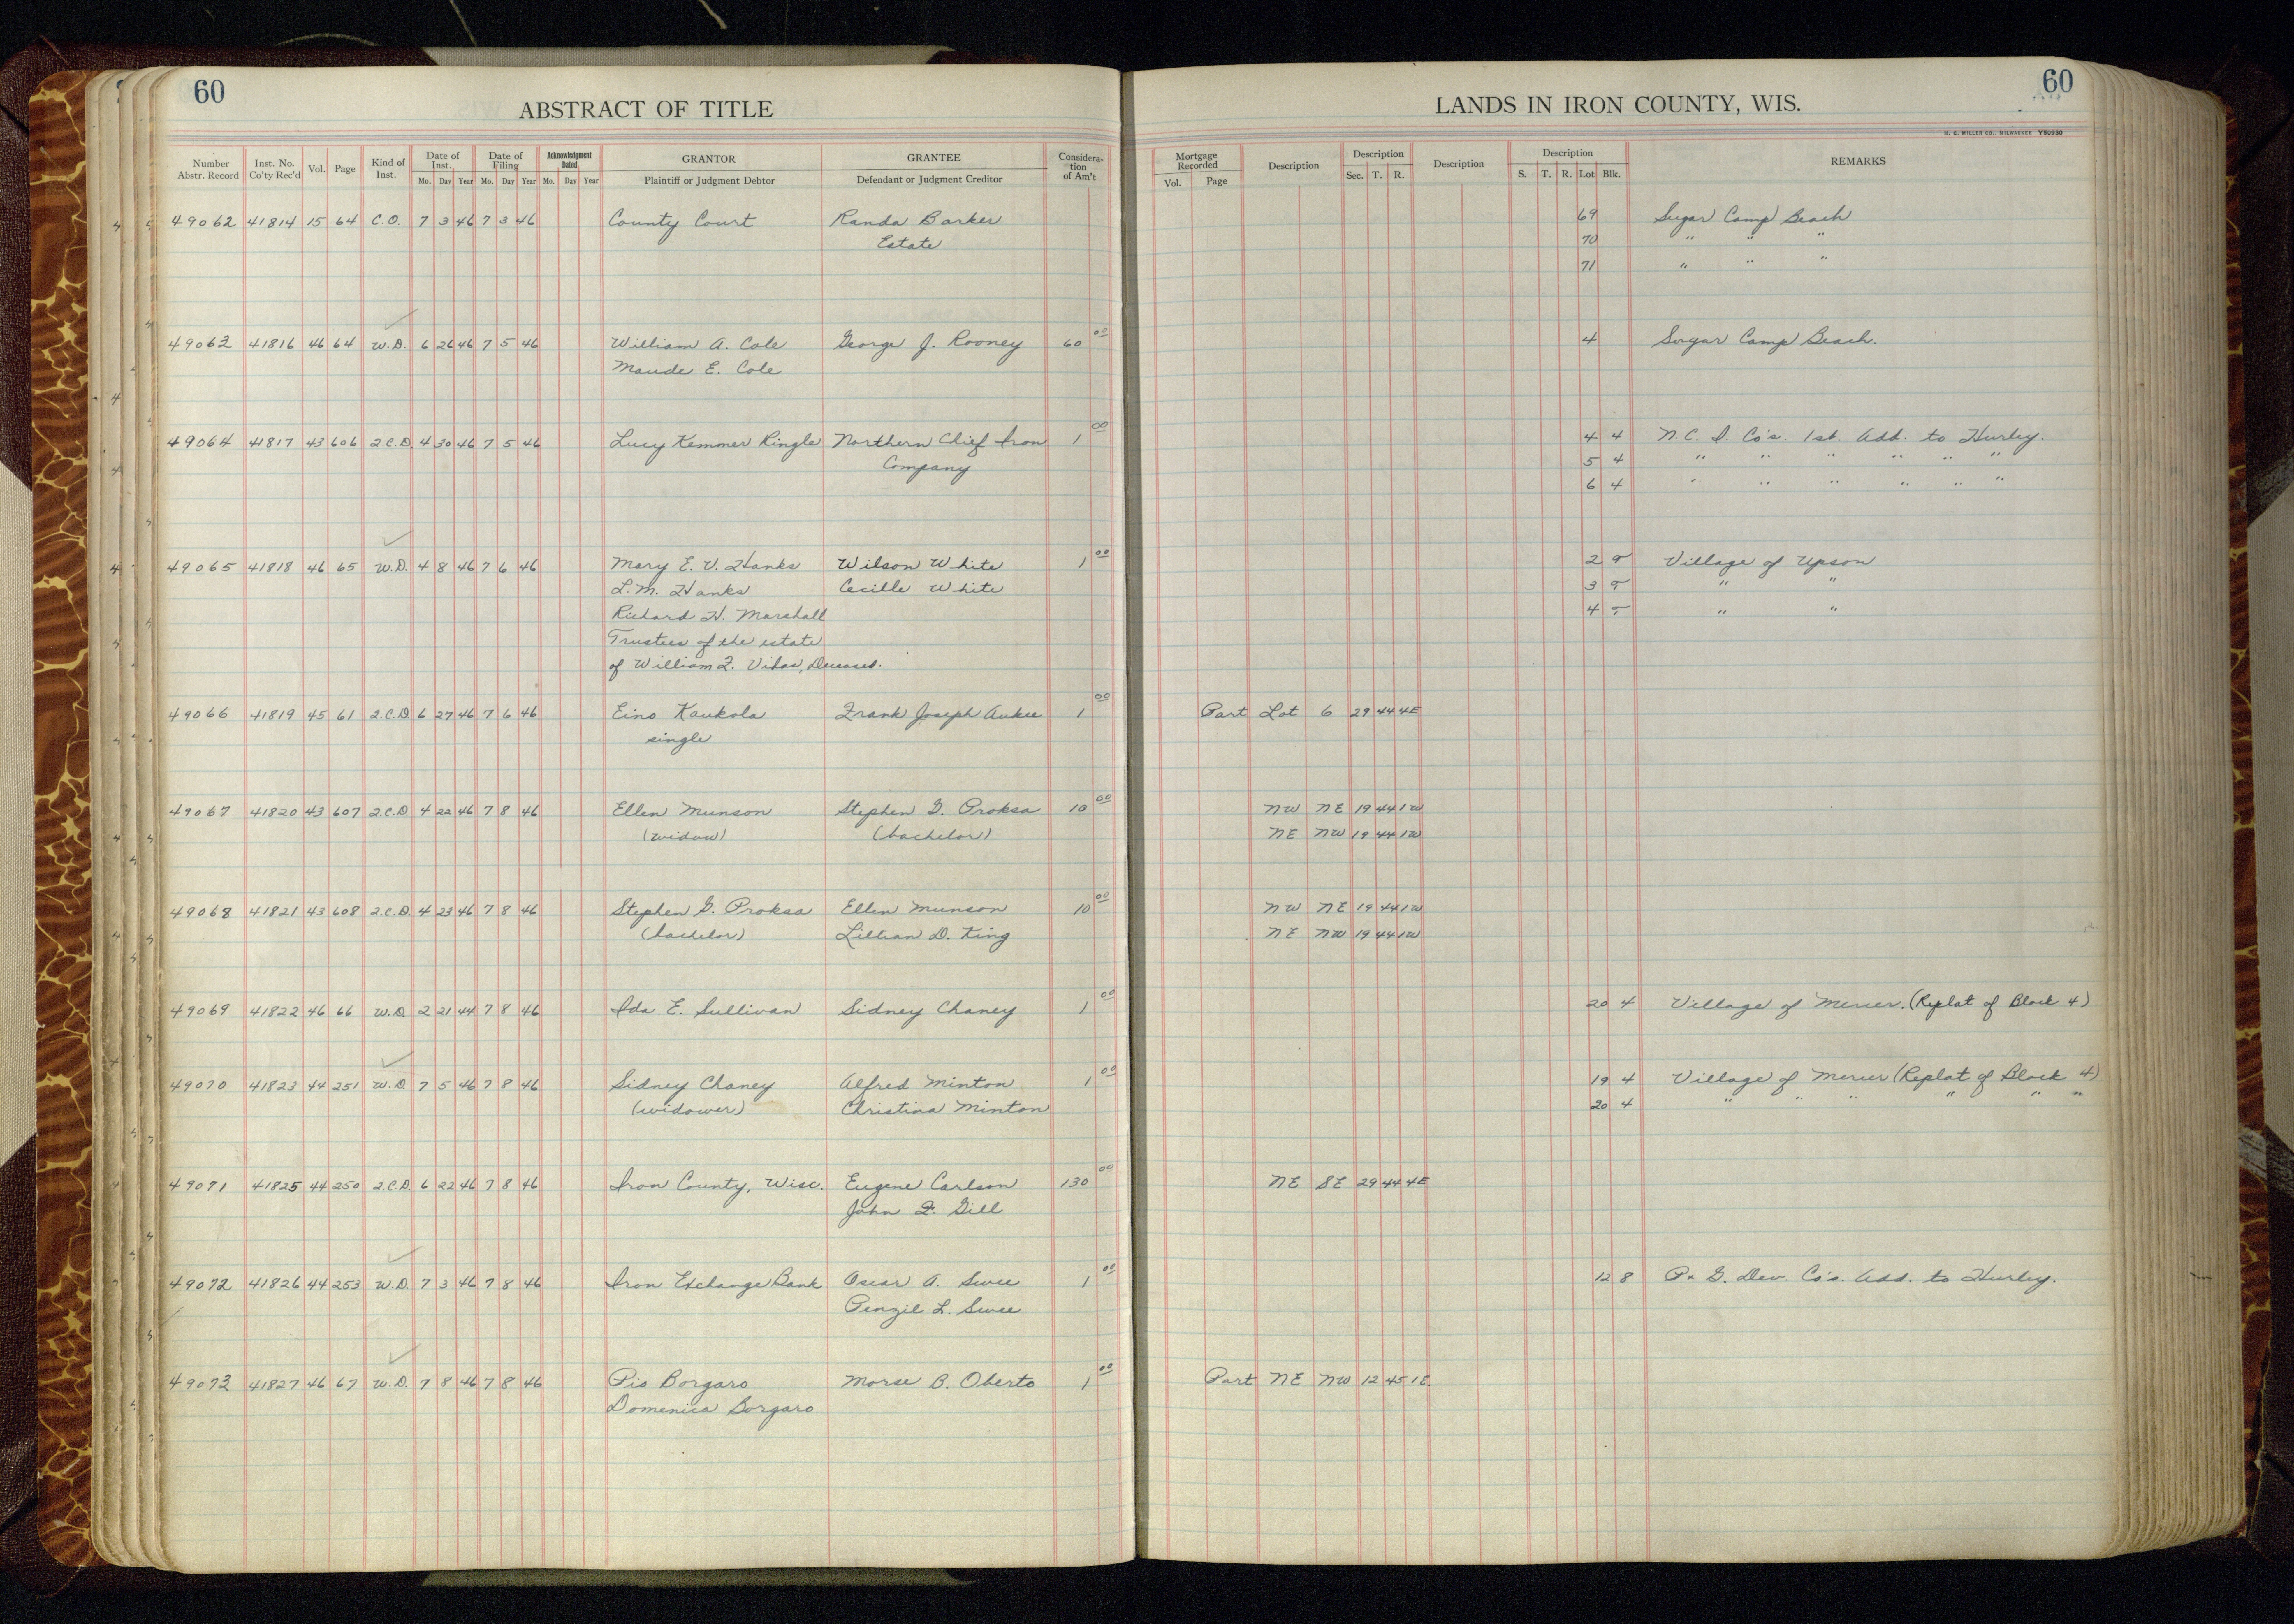 60
ABSTRACT OF TITLE
LANDS IN IRON COUNTY, WIS.
60
H. C. MILLER CO., MILWAUKEE Y50930
Number Abstr. Record Inst. No. Co'ty Rec'd Vol. Page Kind of Inst. Date of Inst. Mo. Day Year Date of Filing Mo. Day Year Acknowledgment Dated Mo. Day Year GRANTOR Plaintiff or Judgment Debtor GRANTEE Defendant or Judgment Creditor Considera-tion of Am't Mortgage Recorded Vol. Page Description Description Sec. T. R. Description Description S. T. R. Lot Blk. REMARKS
49062 41814 15 64 C.O. 7 3 46 7 3 46 County Court Randa Barker 69 Sugar Camp Beach
Estate 70 " " "
71 " " "
49063 41816 46 64 W.D. 6 26 46 7 5 46 William A. Cole George J. Rooney 60 00 4 Sugar Camp Beach.
Maude E. Cole
49064 41817 43 606 2.C.D. 4 30 46 7 5 46 Lucy Kemmer Ringle Northern Chief Iron 1 00 4 4 N. C. I. Co's. 1st. Add. to Hurley.
Company 5 4 " " " " " "
6 4 " " " " " "
49065 41818 46 65 W.D. 4 8 46 7 6 46 Mary E. V. Hanks Wilson White 1 00 2 T Village of Upson
L. M. Hanks Cecille White 3 T " "
Richard H. Marshall 4 T " "
Trustees of the estate
of William F. Vilas, Deceased.
49066 41819 45 61 2.C.D. 6 27 46 7 6 46 Eino Kaukola Frank Joseph Aukee 1 00 Part Lot 6 29 44 4E
single
49067 41820 43 607 2.C.D. 4 22 46 7 8 46 Ellen Munson Stephen G. Proksa 10 00 NW NE 19 44 1W
(widow) (bachelor) NE NW 19 44 1W
49068 41821 43 608 2.C.D. 4 23 46 7 8 46 Stephen G. Proksa Ellen Munson 10 00 NW NE 19 44 1W
(bachelor) Lillian D. King NE NW 19 44 1W
49069 41822 46 66 W.D. 2 21 44 7 8 46 Ida E. Sullivan Sidney Chaney 1 00 20 4 Village of Mercer. (Replat of Block 4)
49070 41823 44 251 W.D. 7 5 46 7 8 46 Sidney Chaney Alfred Minton 1 00 19 4 Village of Mercer (Replat of Block 4)
(widower) Christina Minton 20 4 " " " " " "
49071 41825 44 250 2.C.D. 6 22 46 7 8 46 Iron County, Wisc. Eugene Carlson 130 00 NE SE 29 44 4E
John F. Gill
49072 41826 44 253 W.D. 7 3 46 7 8 46 Iron Exchange Bank Oscar A. Swee 1 00 12 8 P. & G. Dev. Co's. Add. to Hurley.
L. Swee
49073 41827 46 67 W.D. 7 8 46 7 8 46 Pio Borgaro Morse B. Oberto 1 00 Part NE NW 12 45 1E.
Domenica Borgaro